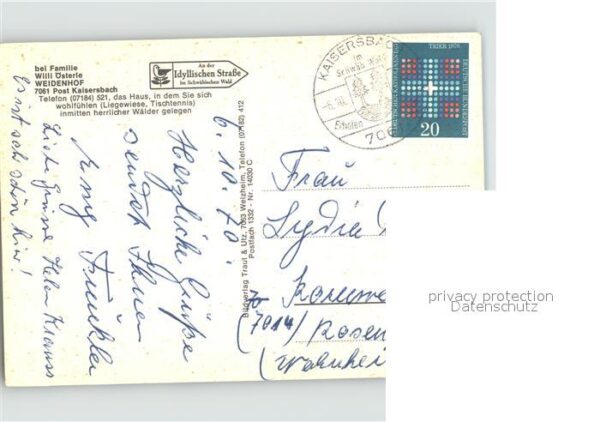 bei Familie
Willi Österle
WEIDENHOF
7061 Post Kaisersbach
Telefon (07184) 521, das Haus, in dem Sie sich
wohlfühlen (Liegewiese, Tischtennis)
inmitten herrlicher Wälder gelegen
An der
Idyllischen Straße
im Schwäbischen Wald
KAISERSBACH
im
Schwäb. Wald
Erholen
706
TRIER 1970
DEUTSCHE BUNDESPOST
20
6.10.70.
Herzliche Grüße
sendet Ihnen
Liebe Grüsse Helen Krauss
Es ist sehr schön hier!
Bildverlag Traut & Utz, 7063 Welzheim, Telefon (07182) 412
Postfach 1332 - Nr. 14030 C
Frau
Lydia
7014
Rosen
privacy protection
Datenschutz